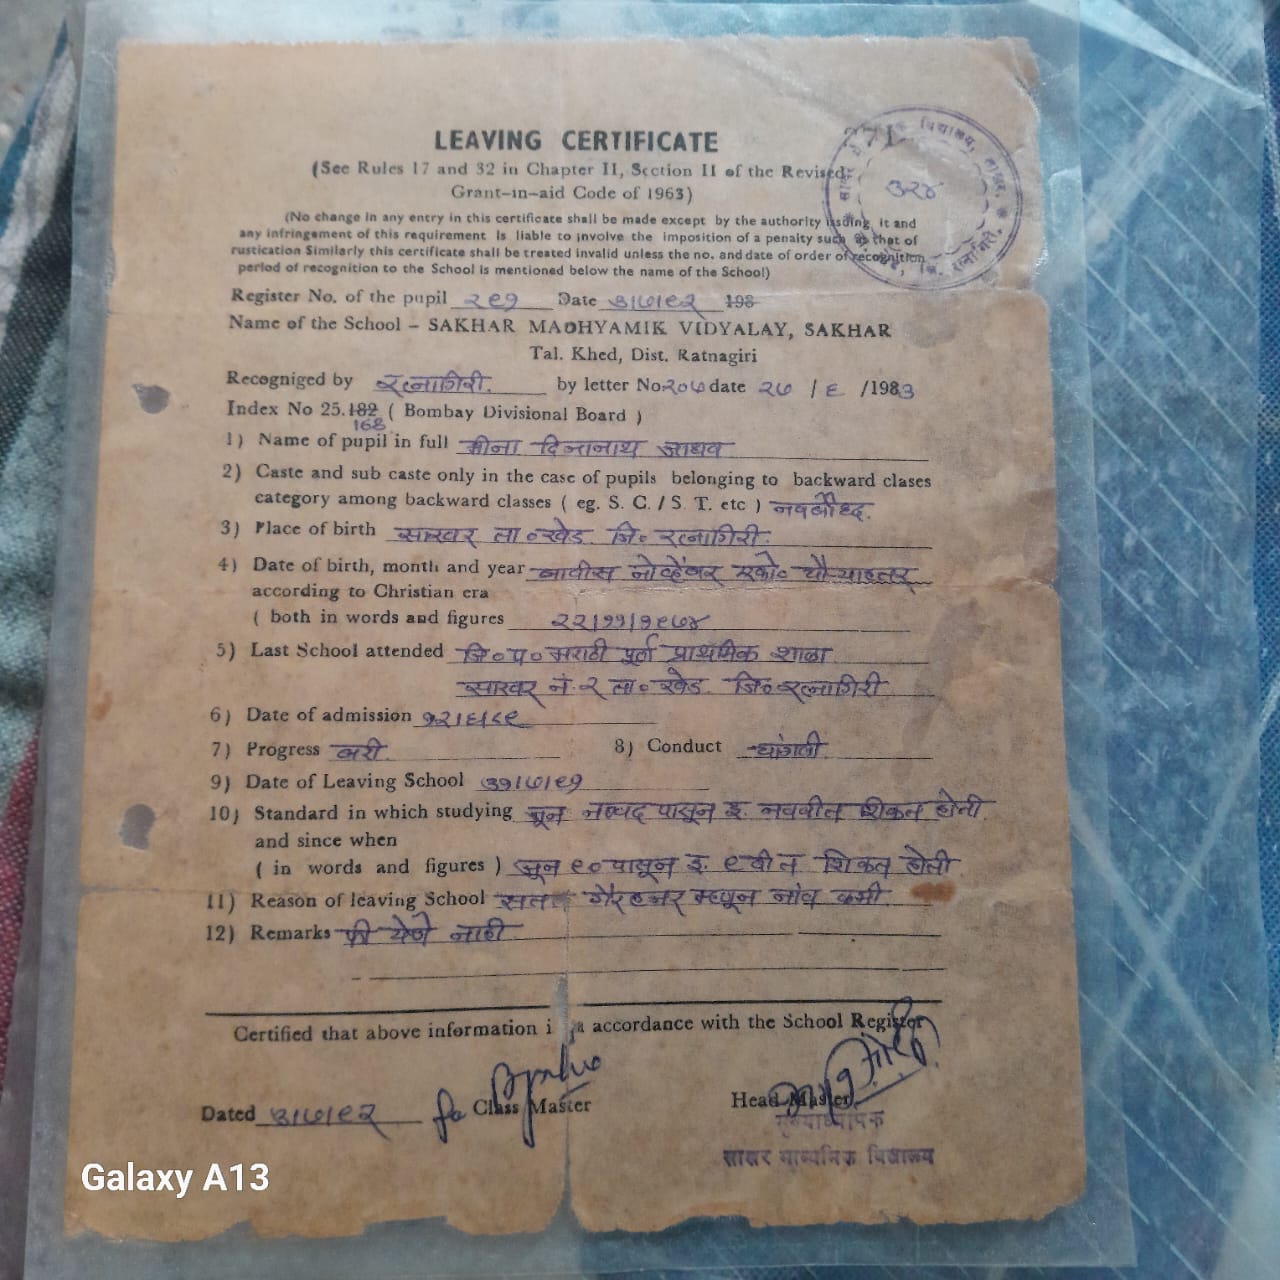 LEAVING CERTIFICATE
(See Rules 17 and 32 in Chapter II, Section II of the Revised
Grant-in-aid Code of 1963)
(No change in any entry in this certificate shall be made except by the authority issuing it and
any infringement of this requirement is liable to involve the imposition of a penalty such as that of
rustication Similarly this certificate shall be treated invalid unless the no. and date of order of recognition
period of recognition to the School is mentioned below the name of the School)
३२४
Register No. of the pupil २९१ Date ३।७।९२ 198
Name of the School - SAKHAR MADHYAMIK VIDYALAY, SAKHAR
Tal. Khed, Dist. Ratnagiri
Recogniged by रत्नागिरी. by letter No २०७ date २७ / ६ /1983
Index No 25.182 ( Bombay Divisional Board )
168
1) Name of pupil in full मीना दिनानाथ जाधव
2) Caste and sub caste only in the case of pupils belonging to backward clases
category among backward classes ( eg. S. C. / S. T. etc ) नवबौध्द.
3) Place of birth साखर ता०खेड. जि० रत्नागिरी.
4) Date of birth, month and year बावीस नोव्हेंबर एको० चौऱ्याहत्तर
according to Christian era
( both in words and figures २२।११।१९७४
5) Last School attended जि०प० मराठी पूर्ण प्राथमिक शाळा
साखर नं. २ ता० खेड. जि० रत्नागिरी
6) Date of admission १२।६।८९
7) Progress बरी. 8) Conduct चांगली.
9) Date of Leaving School ३१।७।९१
10) Standard in which studying जून नव्वद पासून इ. नववीत शिकत होती.
and since when
( in words and figures ) जून ९० पासून इ. ९ वी त शिकत होती
11) Reason of leaving School सतत गैरहजर म्हणून नांव कमी.
12) Remarks फी येणे नाही
Certified that above information i a accordance with the School Register
Dated ३।७।९२ for Class Master Head Master
मुख्याध्यापक
साखर माध्यमिक विद्यालय
Galaxy A13